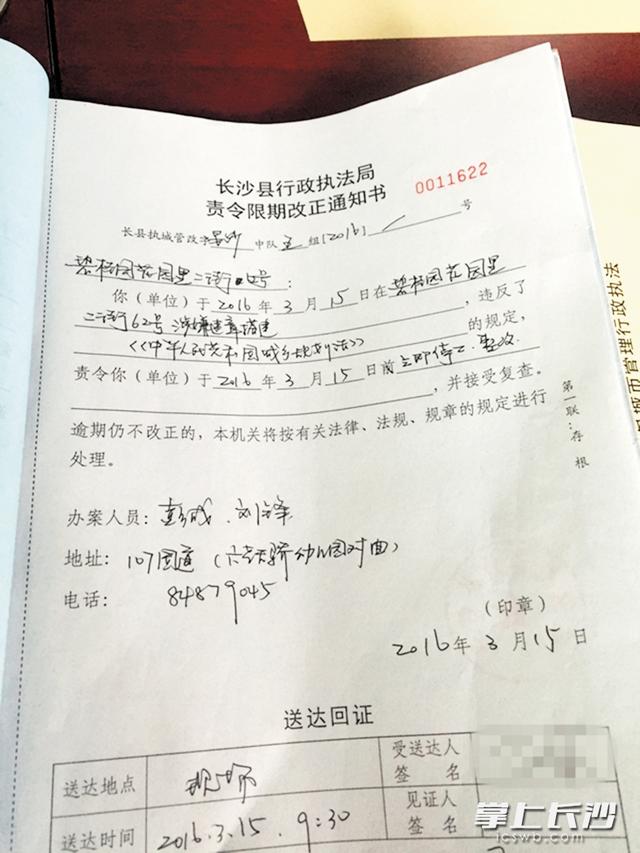 长沙县行政执法局
责令限期改正通知书
0011622
长县执城管改字 星沙 中队 直 组[2016] 号
碧桂园花园里二街 号：
你（单位）于2016年3月15日在碧桂园花园里
二街62号 涉嫌违章搭建，违反了
《中华人民共和国城乡规划法》的规定，
责令你（单位）于2016年3月15日前立即停工.整改
，并接受复查。
逾期仍不改正的，本机关将按有关法律、法规、规章的规定进行
处理。
第一联：存根
办案人员：彭成、刘锋
地址：107国道（六艺天骄幼儿园对面）
电话：84879045
（印章）
2016年3月15日
送达回证
送达地点 现场 受送达人签名
送达时间 2016.3.15. 9:30 见证人签名
城市管理行政执法
掌上长沙
icswb.com